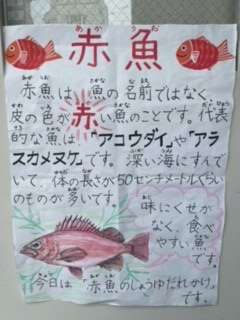 赤魚
赤魚は、魚の名前ではなく、
皮の色が赤い魚のことです。代表
的な魚は、「アコウダイ」や「アラ
スカメヌケ」です。深い海にすんで
いて、体の長さが50センチメートルぐらい
のものが多いです。
味にくせが
なく、食べ
やすい魚
です。
今日は「赤魚のしょうゆだれかけ」
です。